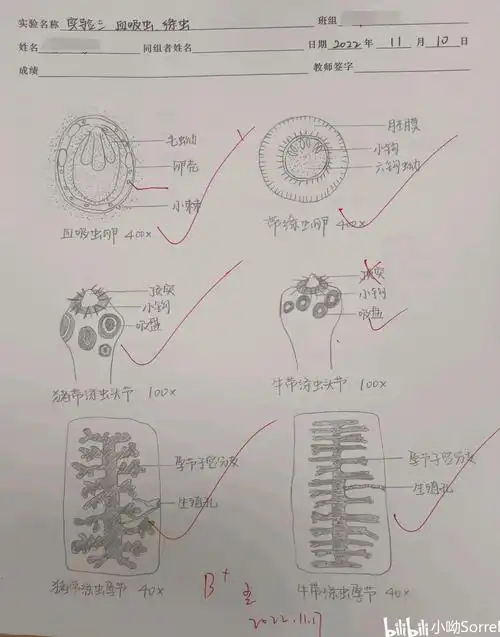 实验名称 实验三 血吸虫、绦虫 班组
姓名 同组者姓名 日期 2022 年 11 月 10 日
成绩 教师签字
毛蚴
卵壳
小棘
血吸虫卵 400x
胚膜
小钩
六钩蚴
带绦虫卵 400x
顶突
小钩
吸盘
猪带绦虫头节 100x
顶突
小钩
吸盘
牛带绦虫头节 100x
孕节子宫分支
生殖孔
猪带绦虫孕节 40x
孕节子宫分支
生殖孔
牛带绦虫孕节 40x
B+
2022.11.17
bilibili 小呦Sorrel